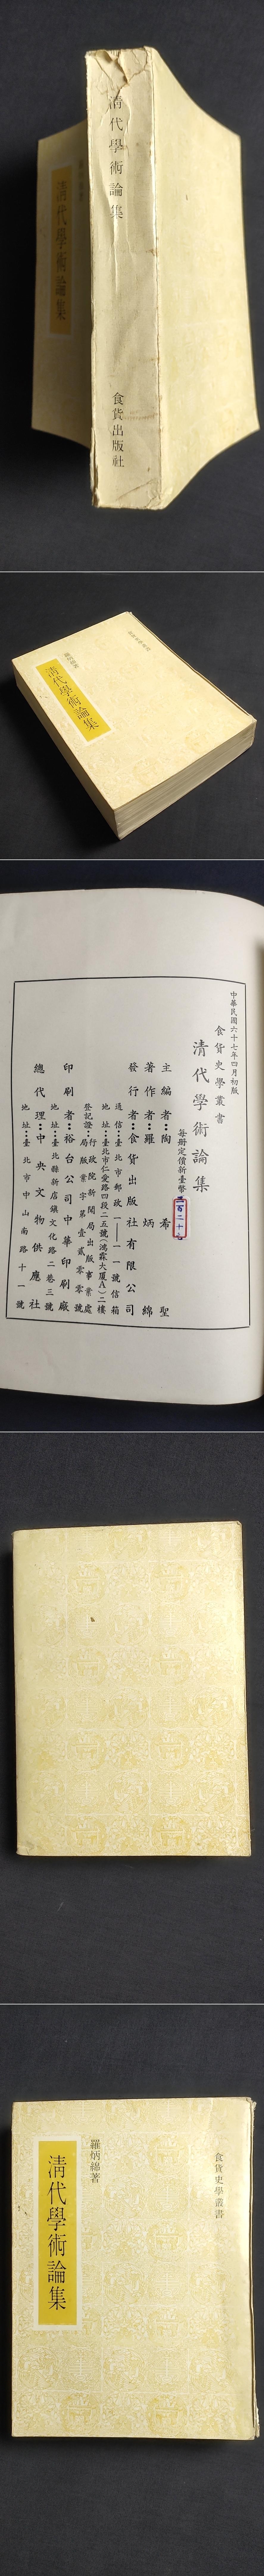 清代學術論集
食貨出版社
清代學術論集
羅炳綿著
清代學術論集
食貨史學叢書
羅炳綿著
清代學術論集
中華民國六十七年四月初版
食貨史學叢書
清代學術論集
每冊定價新臺幣
主編者：陶希聖
著作者：羅炳綿
發行者：食貨出版社有限公司
通信：臺北市郵政一一一一號信箱
地址：臺北市仁愛路四段二五號（鴻霖大厦A）二樓
登記證：行政院新聞局出版事業處
局版業字第壹貳零零號
印刷者：裕台公司中華印刷廠
地址：臺北縣新店鎮文化路二巷三號
總代理：中央文物供應社
地址：臺北市中山南路十一號
食貨史學叢書
羅炳綿著
清代學術論集